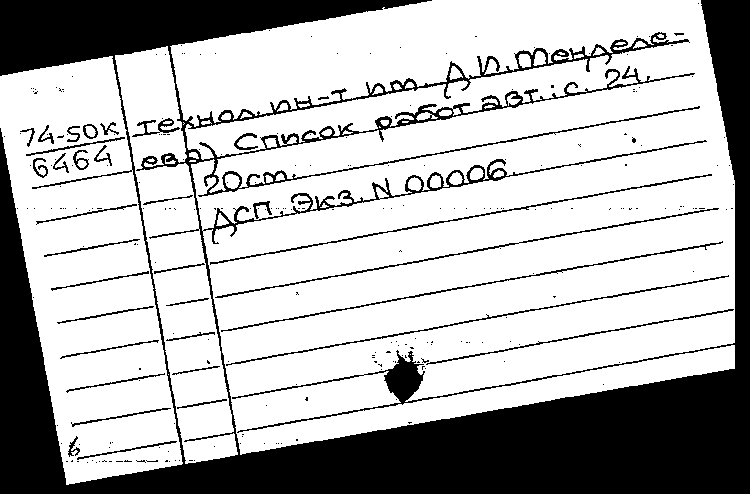 технол. ин-т им. Д.И. Менделе-
74-50к
ева). Список работ авт.: с. 24.
6464
20см.
ДСП. Экз. N 00006.
б